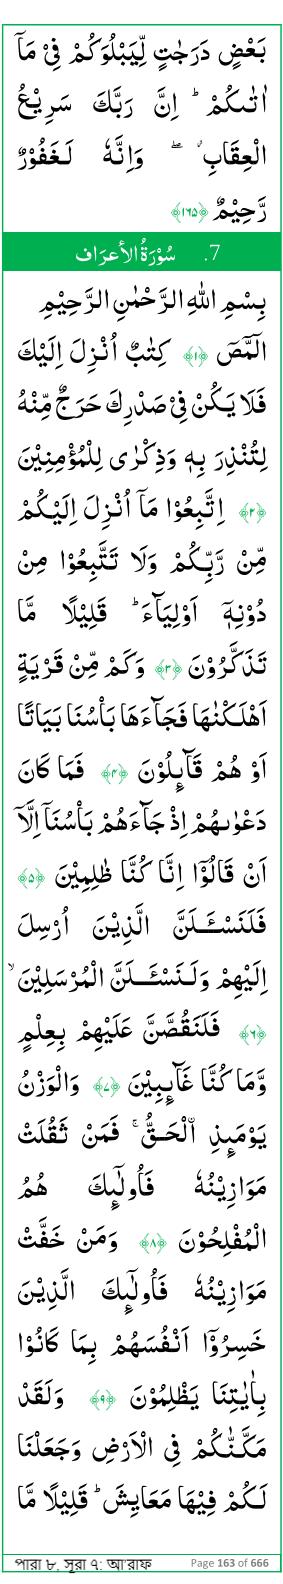 بَعۡضٍ دَرَجٰتٍ لِّیَبۡلُوَکُمۡ فِیۡ مَاۤ
اٰتٰىکُمۡ ؕ اِنَّ رَبَّکَ سَرِیۡعُ
الۡعِقَابِ ۫ۖ وَاِنَّہٗ لَغَفُوۡرٌ
رَّحِیۡمٌ ﴿۱۶۵﴾
7. سُوۡرَۃُ الأعرَاف
بِسۡمِ اللّٰہِ الرَّحۡمٰنِ الرَّحِیۡمِ
الٓـمّٓصٓ ﴿۱﴾ کِتٰبٌ اُنۡزِلَ اِلَیۡکَ
فَلَا یَکُنۡ فِیۡ صَدۡرِکَ حَرَجٌ مِّنۡہُ
لِتُنۡذِرَ بِہٖ وَذِکۡرٰی لِلۡمُؤۡمِنِیۡنَ
﴿۲﴾ اِتَّبِعُوۡا مَاۤ اُنۡزِلَ اِلَیۡکُمۡ
مِّنۡ رَّبِّکُمۡ وَلَا تَتَّبِعُوۡا مِنۡ
دُوۡنِہٖۤ اَوۡلِیَآءَ ؕ قَلِیۡلًا مَّا
تَذَکَّرُوۡنَ ﴿۳﴾ وَکَمۡ مِّنۡ قَرۡیَۃٍ
اَہۡلَکۡنٰہَا فَجَآءَہَا بَاۡسُنَا بَیَاتًا
اَوۡ ہُمۡ قَآئِلُوۡنَ ﴿۴﴾ فَمَا کَانَ
دَعۡوٰىہُمۡ اِذۡ جَآءَہُمۡ بَاۡسُنَاۤ اِلَّاۤ
اَنۡ قَالُوۡۤا اِنَّا کُنَّا ظٰلِمِیۡنَ ﴿۵﴾
فَلَنَسۡـَٔلَنَّ الَّذِیۡنَ اُرۡسِلَ
اِلَیۡہِمۡ وَلَـنَسۡـَٔـلَنَّ الۡمُرۡسَلِیۡنَ ۙ
﴿۶﴾ فَلَنَقُصَّنَّ عَلَیۡہِمۡ بِعِلۡمٍ
وَّمَا کُنَّا غَآئِبِیۡنَ ﴿۷﴾ وَالۡوَزۡنُ
یَوۡمَئِذِ ۣالۡحَـقُّ ۚ فَمَنۡ ثَقُلَتۡ
مَوَازِیۡنُہٗ فَاُولٰٓئِکَ ہُمُ
الۡمُفۡلِحُوۡنَ ﴿۸﴾ وَمَنۡ خَفَّتۡ
مَوَازِیۡنُہٗ فَاُولٰٓئِکَ الَّذِیۡنَ
خَسِرُوۡۤا اَنۡفُسَہُمۡ بِمَا کَانُوۡا
بِاٰیٰتِنَا یَظۡلِمُوۡنَ ﴿۹﴾ وَلَقَدۡ
مَکَّنّٰکُمۡ فِی الۡاَرۡضِ وَجَعَلۡنَا
لَکُمۡ فِیۡہَا مَعَایِشَ ؕ قَلِیۡلًا مَّا
পারা ৮, সূরা ৭: আ'রাফ Page 163 of 666